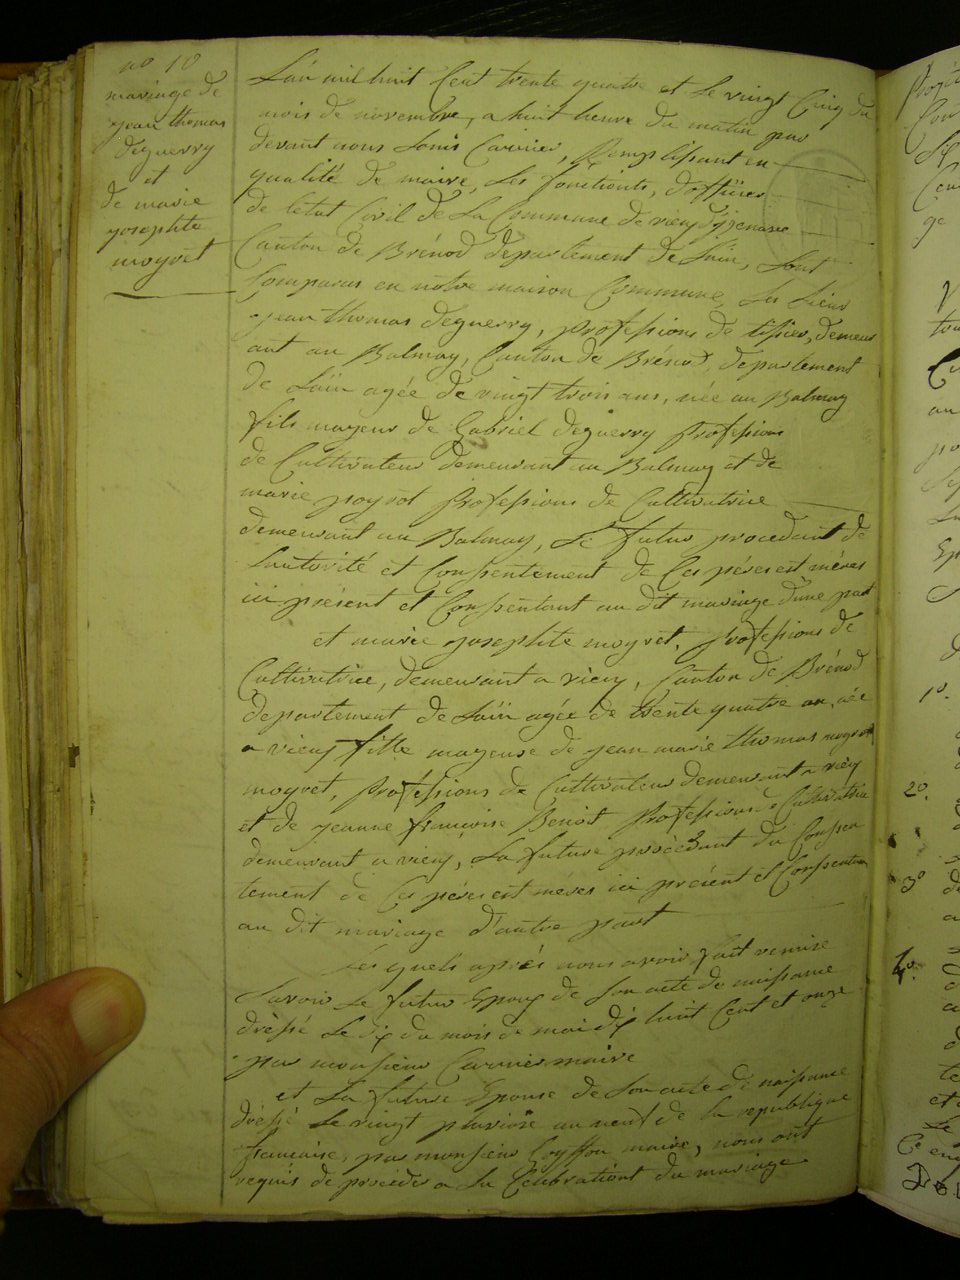 no 10
mariage de
jean thomas
deguerry
et
de marie
josephte
moyret
L'an mil huit Cent trente quatre et Le vingt Cinq du
mois de novembre, a huit heure du matin par
devant nous Louis Carrier, Remplissant en
qualité de maire, Les fonctionts, d'officier
de letat Civil de La Commune de vieu d'izenave
Canton de Brénod departement de Lain, Sont
Comparus en nôtre maison Commune, Les Sieur
jean thomas deguerry, professions de tissier, demeur
ant au Balmay, Canton de Brenod, departement
de Laïn agée de vingt trois ans, née au Balmay
fils mayeur de Gabriel deguerry profession
de Cultivateur demeurant au Balmay et de
marie poysot professions de Cultivatrice
demeurant au Balmay, Le futur procedant de
Lautorité et Consentement de Ces péres est méres
ici présent et Consentant au dit mariage d'une part
et marie josephte moyret, professions de
Cultivatrice, demeurant a vieu, Canton de Brénod
departement de Laïn agée de trente quatre an, née
a vieu fille mayeuse de jean marie thomas moyret
moyret, professions de Cultivateur demeurant a vieu
et de jeanne françoise Benoit professions de Cultivatrice
demeurant a vieu, La future procédant du Consen
tement de Ces péres est méres ici présent et Consentan
au dit mariage d'autre part
Les quels aprés nous avoir fait remise
Savoir Le futur Epoux de Son acte de naissance
dréssé Le dix du mois de mai dix huit Cent et onze
par monsieur Carrier maire
et La future Epouse de Son acte de naissance
dréssé Le vingt pluviose an neuf de la republique
francaise, par monsieur maire, nous ont
requis de procéder a La Célébrationt du mariage
1o.
2o.
3o
4o.